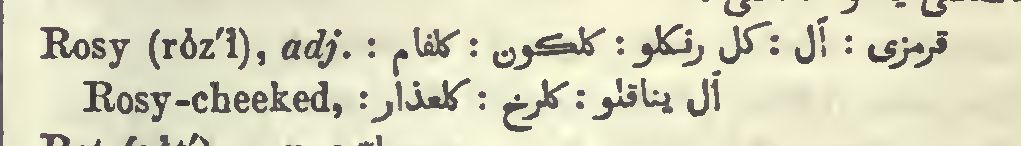 Rosy (rȯz′ĭ), adj. : قرمزی : آل : كل رنكلو : كلكون : كلفام
Rosy-cheeked, : آل يناقلو : كلرخ : كلعذار